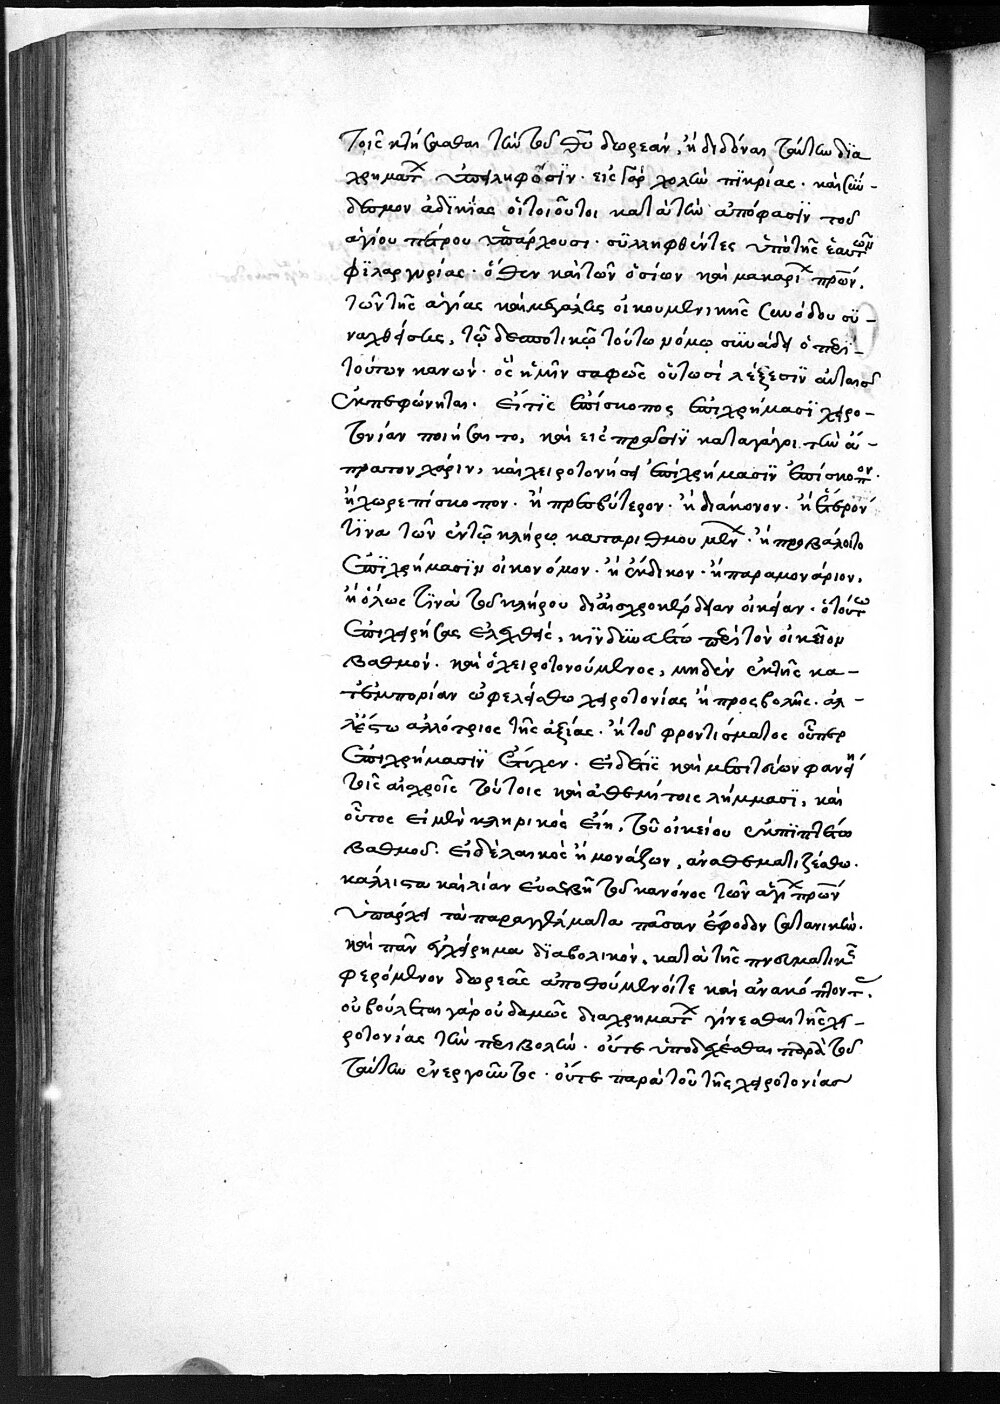 τοῖς κτήσασθαι τὴν τοῦ θῦ δωρεάν, ἢ διδόναι ταύτην δϊα
χρημάτ ὑπειληφόσϊν· εἰς γὰρ χολὴν πϊκρίας· καὶ σύν-
δεσμον ἀδϊκίας οἱ τοιοῦτοι κατὰ τὴν ἀπόφασϊν τοῦ
ἁγίου πέτρου ὑπάρχουσι· σϋλληφθέντες ὑπὸ τῆς ἑαυτῶν
φϊλαργυρίας· ὅθεν καὶ τῶν ὁσίων καὶ μακαρί πρων,
τῶν τῆς ἁγίας καὶ μεγάλης οἰκουμενικῆς συνόδου συ-
ναχθείσης, τῷ δεσποτικῷ τούτω νόμῳ συνάδει ὁ περὶ
τούτων κανών· ὃς ἡμῖν σαφῶς οὑτωσὶ λέξεσϊν αὐταῖς
ἐκπεφώνηται. Εἴ τϊς ἐπίσκοπος ἐπὶ χρήμασϊ χειρο-
τονίαν ποιήσαιτο, καὶ εἰς πρᾶσϊν καταγάγοι τὴν ἄ-
πρατον χάριν, καὶ χειροτονήσει ἐπὶ χρήμασϊν ἐπίσκοπον·
ἢ χωρεπίσκοπον· ἢ πρεσβύτερον· ἢ διάκονον· ἢ ἕτερόν
τϊνα τῶν ἐν τῷ κλήρῳ καταριθμουμέν· ἢ προβάλοιτο
ἐπὶ χρήμασϊν οἰκονόμον· ἢ ἔκδικον· ἢ παραμονάριον,
ἢ ὅλως τϊνὰ τοῦ κλήρου δι αἰσχροκέρδειαν οἰκείαν· ὁ τοῦτο
ἐπιχειρήσας ἐλεγχθείς, κϊνδϋνευέτω περὶ τὸν οἰκεῖον
βαθμόν· καὶ ὁ χειροτονούμενος, μηδὲν ἐκ τῆς κα-
τ ἐμπορίαν ὠφελείσθω χειροτονίας ἢ προσβολῆς· ἀλ-
λ ἔστω ἀλλότριος τῆς ἀξίας· ἢ τοῦ φροντίσματος οὗπερ
ἐπὶ χρήμασϊν ἔτυχεν· Εἰ δέ τϊς καὶ μεσιτεύων φανείη
τοῖς αἰσχροῖς τούτοις καὶ ἀθεμίτοις λήμμασϊ, καὶ
οὗτος εἰ μὲν κληρικὸς εἴη, τοῦ οἰκείου ἐκπϊπτέτω
βαθμοῦ· εἰ δὲ λαικὸς ἢ μονάζων, ἀναθεματιζέσθω·
κάλλιστα καὶ λίαν εὐσεβῆ τοῦ κανόνος τῶν ἁγί πρων
ὑπάρχει τὰ παραγγέλματα πᾶσαν ἔφοδον σατανικὴν·
καὶ πᾶν ἐγχείρημα δϊαβολικόν, κατὰ τῆς πνευματικῆς
φερόμενον δωρεᾶς ἀπωθούμενά τε καὶ ἀνακόπτοντ·
οὐ βούλεται γὰρ οὐδαμῶς διὰ χρημάτ γίνεσθαι τῆς χει-
ροτονίας τὴν περιβολὴν· οὔτε ὑποδέχεσθαι παρὰ τοῦ
ταύτην ἐνεργοῦντος· οὔτε παρὰ τοῦ τῆς χειροτονίας